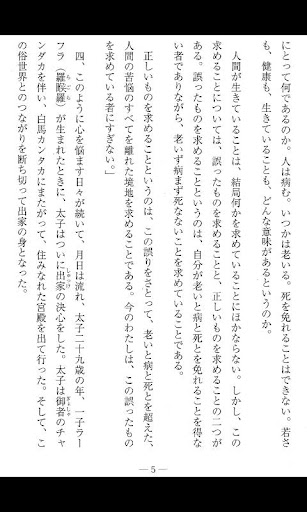 にとって何であるのか。人は病む。いつかは老いる。死を免れることはできない。若さ
も、健康も、生きていることも、どんな意味があるというのか。
人間が生きていることは、結局何かを求めていることにほかならない。しかし、この
求めることについては、誤ったものを求めることと、正しいものを求めることの二つが
ある。誤ったものを求めることというのは、自分が老いと病と死とを免れることを得な
い者でありながら、老いず病まず死なないことを求めていることである。
正しいものを求めることというのは、この誤りをさとって、老いと病と死とを超えた、
人間の苦悩のすべてを離れた境地を求めることである。今のわたしは、この誤ったもの
を求めている者にすぎない。」
四、このように心を悩ます日々が続いて、月日は流れ、太子二十九歳の年、一子ラー
フラ（羅睺羅）が生まれたときに、太子はついに出家の決心をした。太子は御者のチャ
ンダカを伴い、白馬カンタカにまたがって、住みなれた宮殿を出て行った。そして、こ
の俗世界とのつながりを断ち切って出家の身となった。
—5—